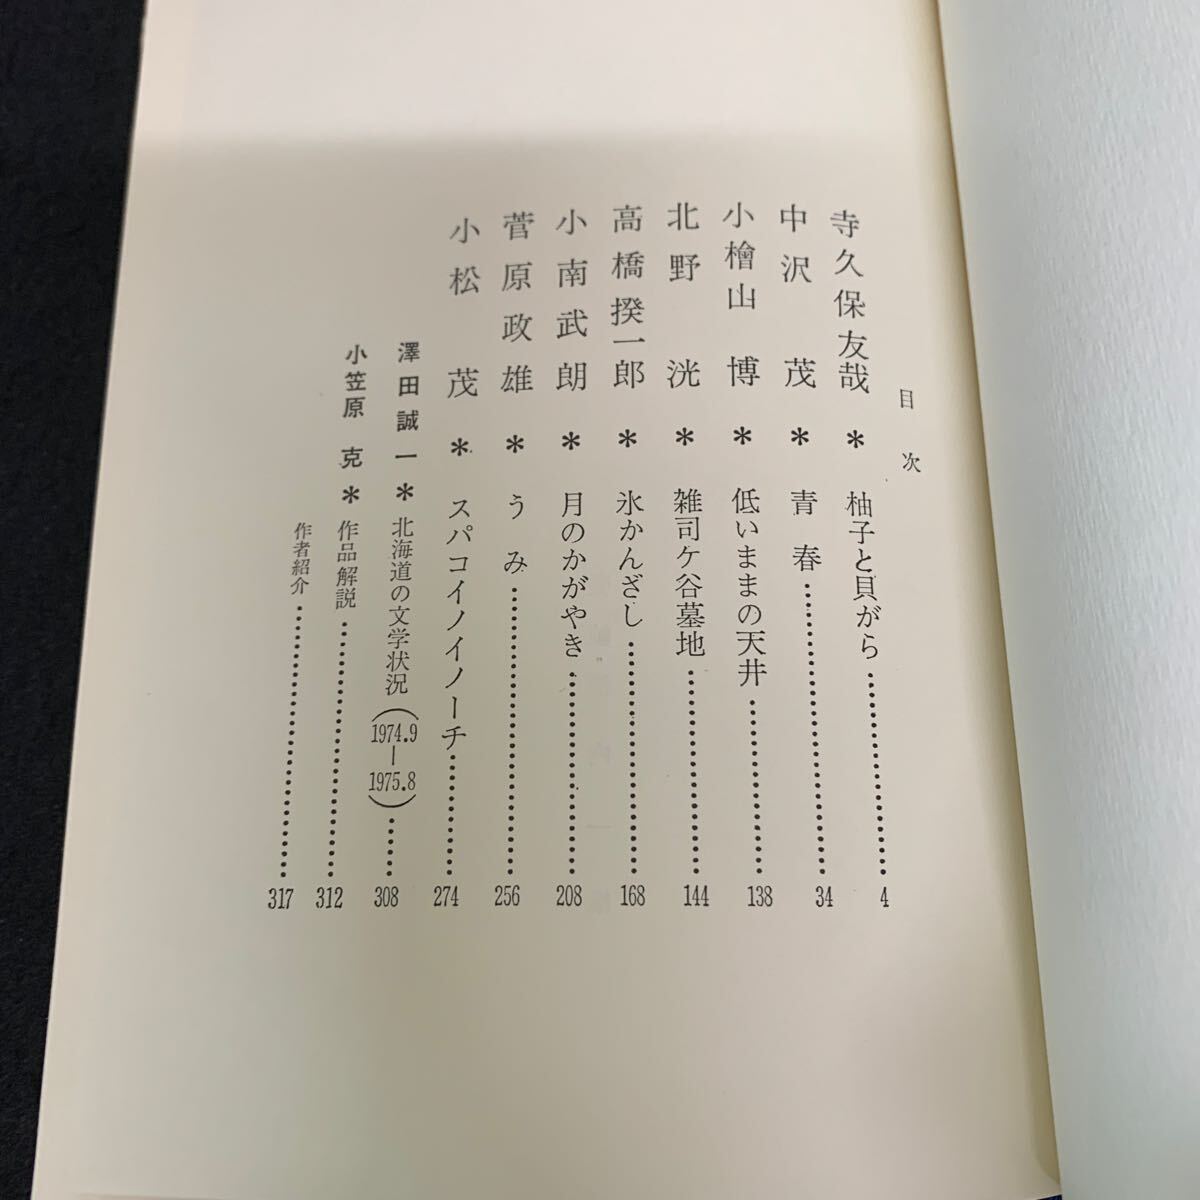 目次
寺久保友哉＊柚子と貝がら……………4
中沢茂＊青春……………34
小檜山博＊低いままの天井……………138
北野洸＊雑司ケ谷墓地……………144
高橋揆一郎＊氷かんざし……………168
小南武朗＊月のかがやき……………208
菅原政雄＊うみ……………256
小松茂＊スパコイノイノーチ……………274
澤田誠一＊北海道の文学状況(1974.9―1975.8)……308
小笠原克＊作品解説……………312
作者紹介……………317